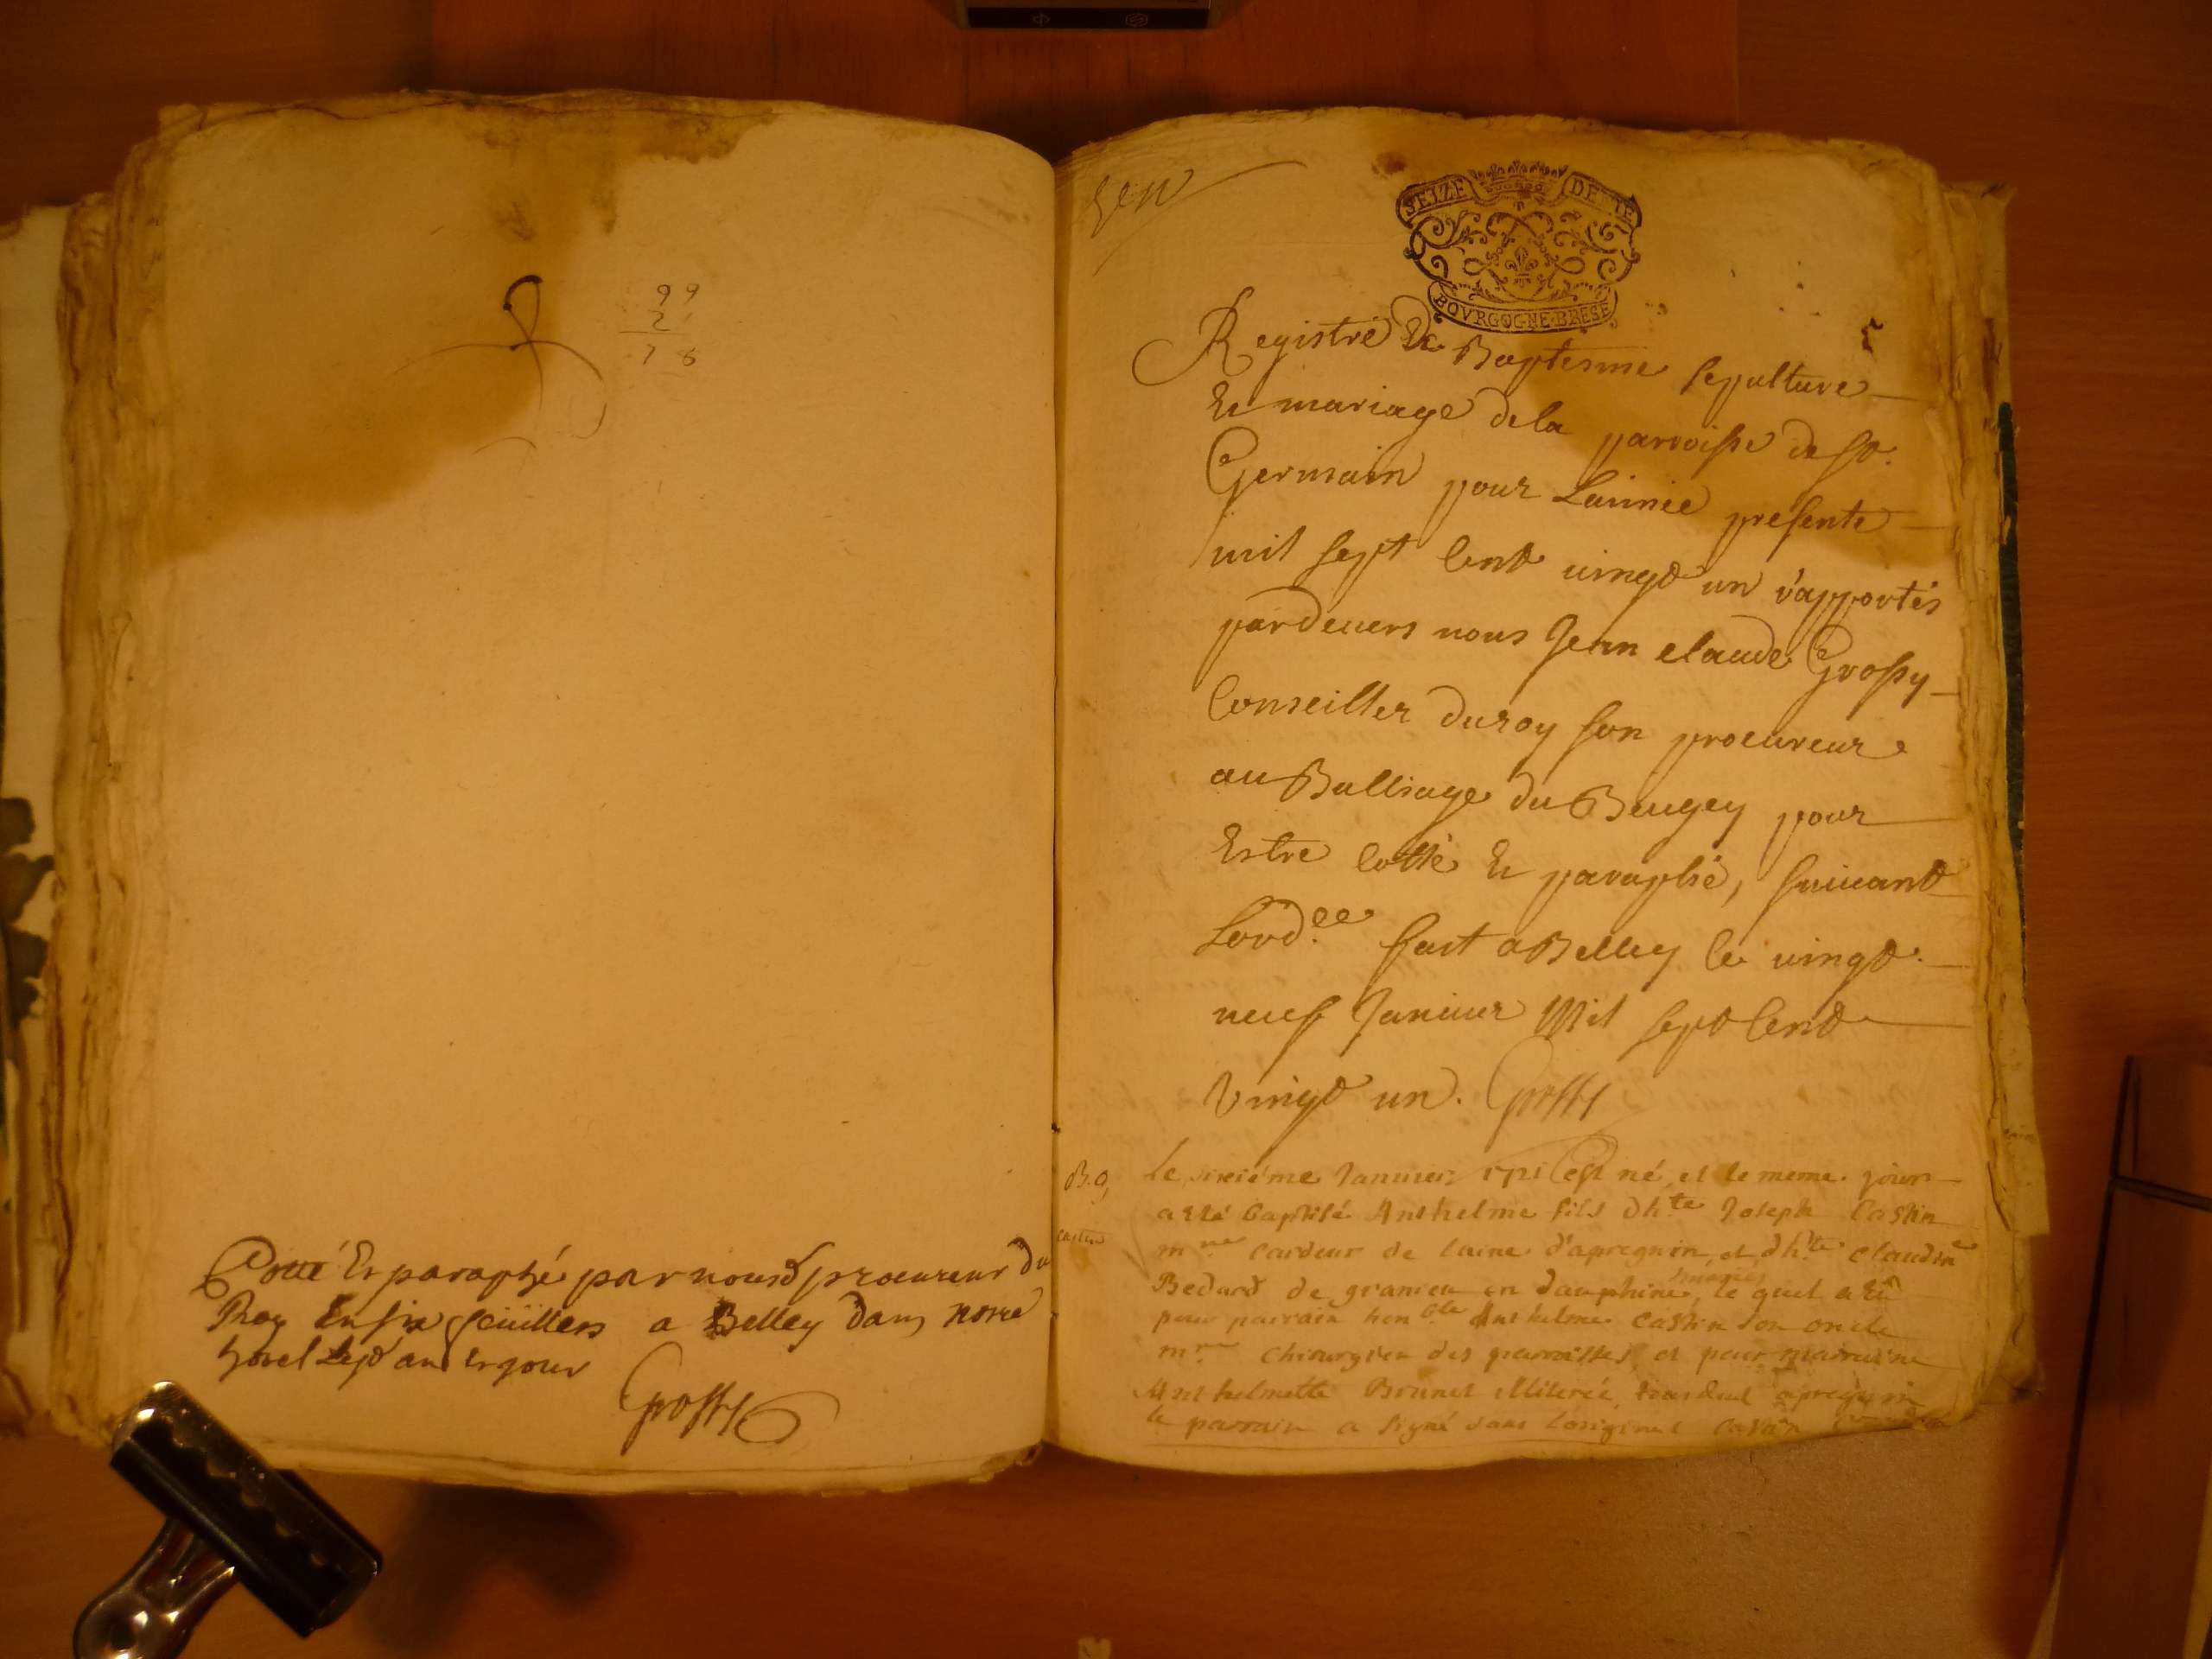 99
2
78
Cotté Et paraphé par nousd procureur du
Roy En six feüilles a Belley dans nostre
hotel lesd an et jour
Grossy
SEIZE DE
BOVRGOGNE BRESE
Registre De Baptesme sepulture
Et mariage de la parroisse de St.
Germain pour Lannée presente
mil sept Cent vingt un rapportés
pardevers nous Jean claude Grossy
Conseiller du roy son procureur
au Balliage du Beugey pour
Estre Cotté Et paraphé, suivant
Lord.ce fait a Belley le vingt
neuf Janvier Mil sept Cent
Vingt un. Grossy
B.
Castin
Le sixiéme Janvier 1721 Est né, et le meme jour
a esté Baptisé Anthelme fils d'h.te Joseph Castin
m.re cardeur de laine d'apregnin, et d'h.te claudine
Bedard de granieu en dauphiné, le quel a eu
mariés
pour parrain hon.ble Anthelme Castin son oncle
m.re chirurgien des parroisses, et pour marraine
Anthelmette Brunet illiterée, apregnin
le parrain a signé dans l'original Castin